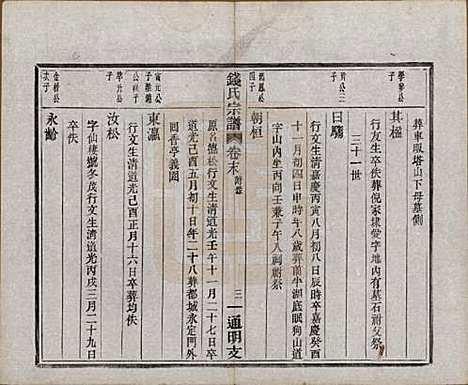 葬東眼塔山下母墓側
學 公子
其楹
行友生卒佚葬倪家棣受字地內有墓石祔父祭
三十一世
公三子
日驕
行文生清嘉慶丙寅八月初八日辰時卒嘉慶癸酉
十一月初四日申時年八歲葬前半湖底眠狗山道
字山內坐丙向壬兼子午入祠祔祭
鳳松公四子
朝桓
錢氏宗譜
卷末
三
通明支
原名德松行文生清道光壬午十一月二十七日卒
道光己酉五月初十日年二十八葬都城永定門外
回香亭義園
寅元公子
東瀛
行文生清道光己酉正月十六日卒葬均佚
公子
汝松
字仙棲號冬茂行文生清道光丙戌三月二十九日
卒佚
公次子
永齡